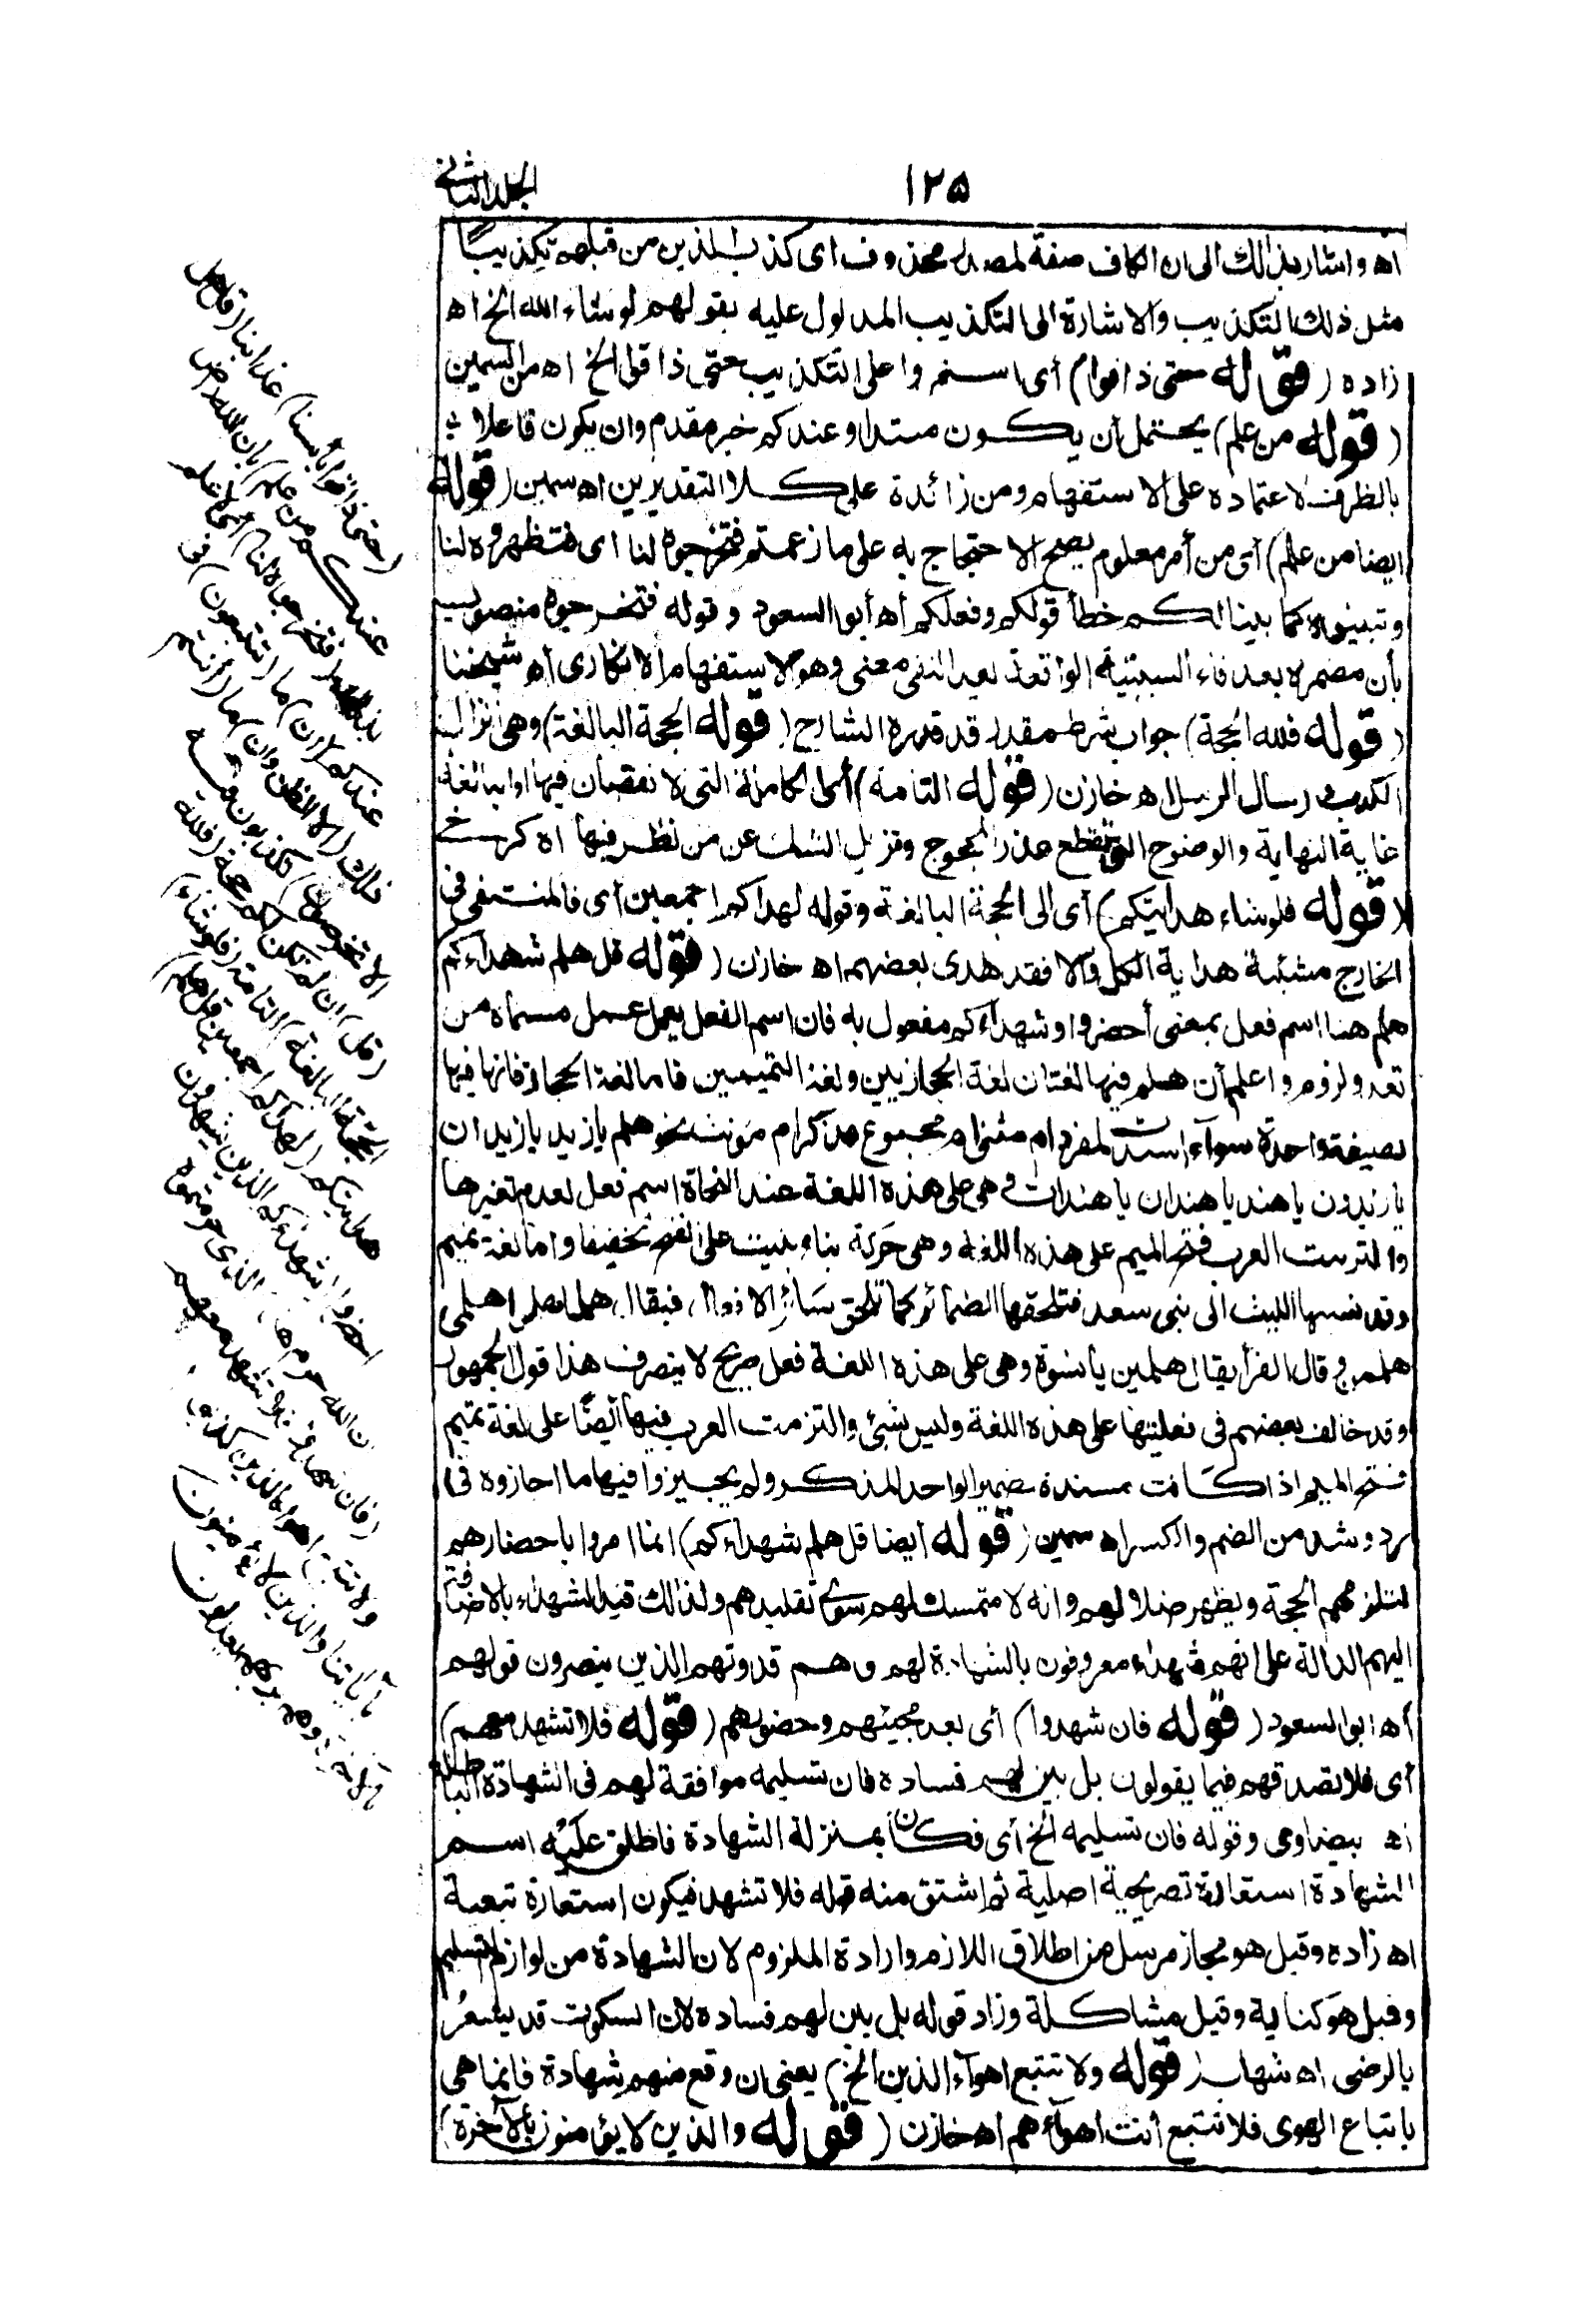 ١٢٥
الجلد الثاني
اه واشار بذلك الى ان الكاف صفة لمصدر محذوف اى كذب الذين من قبلهم تكذيبًا
مثل ذلك التكذيب والاشارة الى التكذيب المدلول عليه بقولهم لو شاء الله الخ اه
زاده (قوله حتى ذاقوا) أى استمروا على التكذيب حتى ذاقوا الخ اه من السمين
(قوله من علم) يحتمل أن يكون مبتدا وعندكم خبر مقدم وان يكون فاعلا
بالظرف لاعتماده على الاستفهام ومن زائدة على كلا التقديرين اه سمين (قوله
ايضا من علم) أى من أمر معلوم يصح الاحتجاج به على ما زعمتم فتخرجوه لنا اى فتظهروه لنا
وتبينوه كما بينا لكم خطأ قولكم وفعلكم أه أبو السعود وقوله فتخرجوه منصوب
بأن مضمرة بعد فاء السببية الواقعة بعد النفى معنى وهو الاستفهام الانكارى أه شيخنا
(قوله فلله الحجة) جواب شرط مقدر قد قدره الشارح (قوله الحجة البالغة) وهى انزال
الكتب وارسال الرسل اه خازن (قوله التامة) أى الكاملة التى لا نقصان فيها او البالغة
غاية النهاية والوضوح التى تقطع عذر المحجوج وتزيل الشك عن من نظر فيها اه كرخى
(قوله فلو شاء هدايتكم) أى الى الحجة البالغة وقوله لهداكم اجمعين أى فالمنتفى فى
الخارج مشيئة هداية الكل والا فقد هدى بعضهم اه خازن (قوله قل هلم شهداءكم
هلم هنا اسم فعل بمعنى أحضروا وشهداءكم مفعول به فان اسم الفعل يعمل عمل مسماه من
تعد ولزوم واعلم أن هلم فيها لغتان لغة الحجازيين ولغة التميميين فاما لغة الحجاز فانها فيها
بصيغة واحدة سوآء اسندت لمفرد ام مثنى ام مجموع مذكر ام مؤنث نحو هلم يا زيد يا زيدان
يا زيدون يا هند يا هندان يا هندات وهى على هذه اللغة عند النحاة اسم فعل لعدم تغيرها
والتزمت العرب فتح الميم على هذه اللغة وهى حركة بناء بنيت على الفتح تخفيفا واما لغة تميم
وقد نسبها الليث الى بنى سعد فتلحقها الضمائر كما تلحق سائر الافعال فيقال هلما هلموا هلمى
هلممن وقال الفرأ يقال هلمين يا نسوة وهى على هذه اللغة فعل صريح لا يتصرف هذا قول الجمهور
وقد خالف بعضهم فى فعليتها على هذه اللغة وليس بشئ والتزمت العرب فيها أيضًا على لغة تميم
فتح الميم اذا كانت مسندة ضمير الواحد المذكر ولم يجيزوا فيها ما اجازوه فى
رد وشد من الضم والكسر اه سمين (قوله أيضا قل هلم شهداءكم) انما امروا باحضارهم
لتلزمهم الحجة ويظهر ضلالهم وانه لا متمسك لهم سوى تقليدهم ولذلك قيد الشهداء بالاضافة
اليهم الدالة على انهم شهداء معروفون بالشهادة لهم وهم قدوتهم الذين ينصرون قولهم
أه ابو السعود (قوله فان شهدوا) أى بعد مجيئهم وحضورهم (قوله فلا تشهد معهم)
أى فلا تصدقهم فيما يقولون بل بين لهم فساده فان تسليمه موافقة لهم فى الشهادة الباطلة
اه بيضاوى وقوله فان تسليمه الخ أى فكان بمنزلة الشهادة فاطلق عليه اسم
الشهادة استعارة تصريحية اصلية ثم اشتق منه قوله فلا تشهد فيكون استعارة تبعية
اه زاده وقيل هو مجاز مرسل من اطلاق اللازم وارادة الملزوم لان الشهادة من لوازم التسليم
وقيل هو كناية وقيل مشاكلة وزاد قوله بل بين لهم فساده لان السكوت قد يشعر
بالرضى اه شهاب (قوله ولا تتبع اهوآء الذين الخ) يعنى ان وقع منهم شهادة فانما هى
باتباع الهوى فلا تتبع أنت اهوآءهم اه خازن (قوله والذين لا يؤمنون بالآخرة)
(حتى ذاقوا بأسنا) عذابنا (قل هل
عندكم من علم) بان الله رضى
بذلك (فتخرجوه لنا) أى لا علم
عندكم (ان) ما (تتبعون) فى
ذلك (الا الظن وان) ما (أنتم
الا تخرصون) تكذبون فيه
(قل) ان لم تكن لكم حجة (فلله
الحجة البالغة) التامة (فلو شاء)
هدايتكم (لهداكم اجمعين قل هلم)
احضروا (شهداءكم الذين يشهدون
ان الله حرم هذا) الذى حرمتموه
(فان شهدوا فلا تشهد معهم
ولا تتبع اهواء الذين كذبوا
بآياتنا والذين لا يؤمنون
بالآخرة وهم بربهم يعدلون